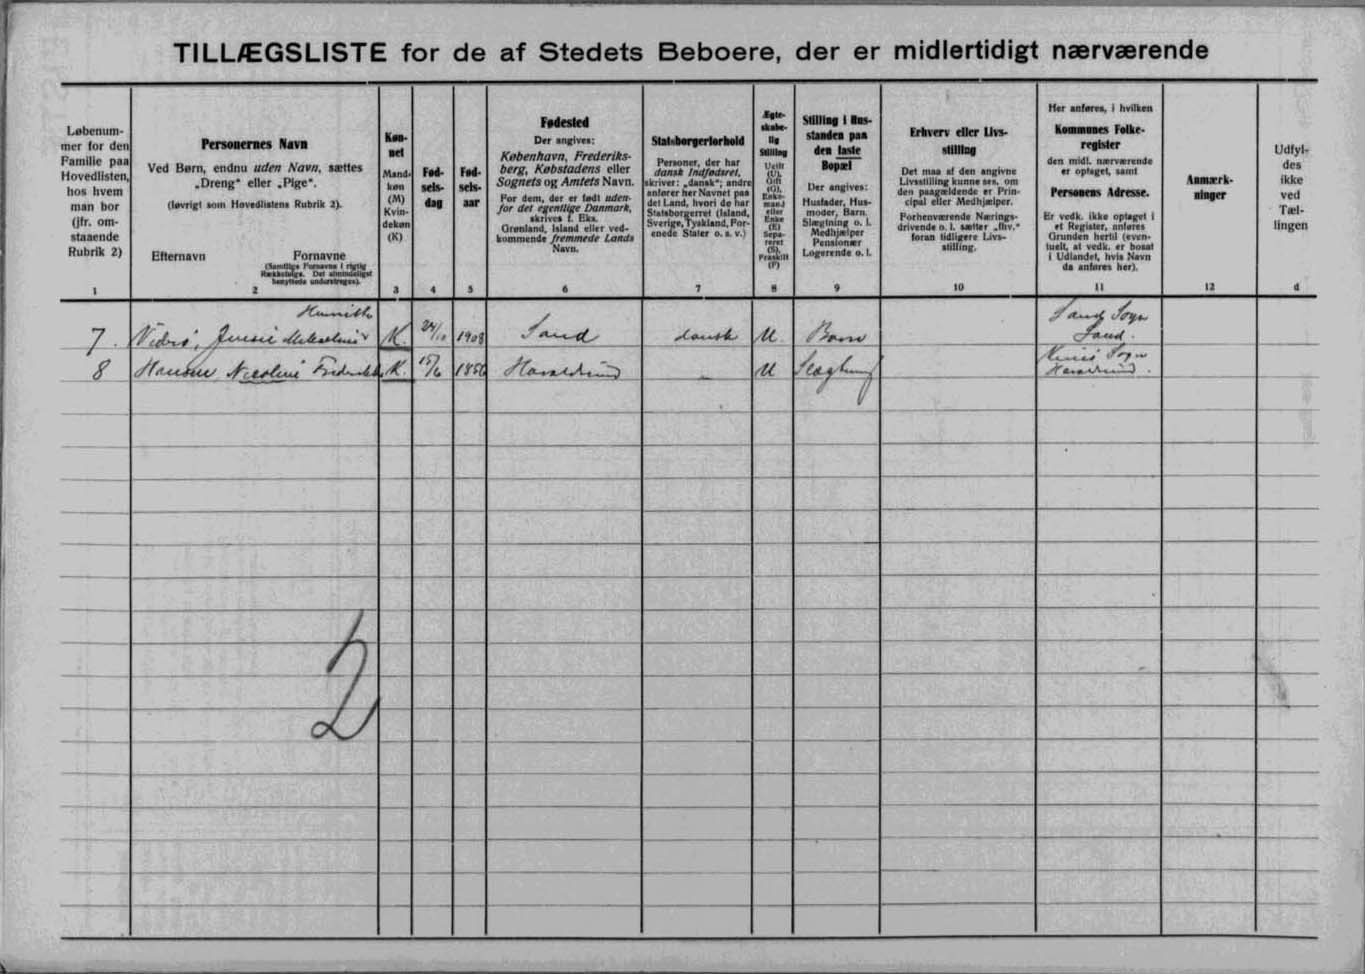 TILLÆGSLISTE for de af Stedets Beboere, der er midlertidigt nærværende
Løbenum-
mer for den
Familie paa
Hovedlisten,
hos hvem
man bor
(jfr. om-
staaende
Rubrik 2)
1
Personernes Navn
Ved Børn, endnu uden Navn, sættes
„Dreng" eller „Pige".
(Iøvrigt som Hovedlistens Rubrik 2).
Efternavn
Fornavne
(Samtlige Fornavne i rigtig
Rækkefølge. Det almindeligst
benyttede understreges).
2
Køn-
net
Mand-
køn
(M)
Kvin-
dekøn
(K)
3
Fød-
sels-
dag
4
Fød-
sels-
aar
5
Fødested
Der angives:
København, Frederiks-
berg, Købstadens eller
Sognets og Amtets Navn.
For dem, der er født uden-
for det egentlige Danmark,
skrives f. Eks.
Grønland, Island eller ved-
kommende fremmede Lands
Navn.
6
Statsborgerforhold
Personer, der har
dansk Indfødsret,
skriver: „dansk"; andre
anfører her Navnet paa
det Land, hvori de har
Statsborgerret (Island,
Sverige, Tyskland, For-
enede Stater o. s. v.)
7
Ægte-
skabe-
lig
Stilling
Ugift
(U),
Gift
(G),
Enke-
mand
eller
Enke
(E)
Sepa-
reret
(S),
Fraskilt
(F)
8
Stilling i Hus-
standen paa
den faste
Bopæl
Der angives:
Husfader, Hus-
moder, Barn,
Slægtning o. l.
Medhjælper
Pensionær
Logerende o. l.
9
Erhverv eller Livs-
stilling
Det maa af den angivne
Livsstilling kunne ses, om
den paagældende er Prin-
cipal eller Medhjælper.
Forhenværende Nærings-
drivende o. l. sætter „fhv."
foran tidligere Livs-
stilling.
10
Her anføres, i hvilken
Kommunes Folke-
register
den midl. nærværende
er optaget, samt
Personens Adresse.
Er vedk. ikke optaget i
et Register, anføres
Grunden hertil (even-
tuelt, at vedk. er bosat
i Udlandet, hvis Navn
da anføres her).
11
Anmærk-
ninger
12
Udfyl-
des
ikke
ved
Tæl-
lingen
d
Sand Sogn
7. K. 24/10 1908 Sand dansk U. Barn Sand.
Sogn
8 Hansen Nicoline K. 15/6 1856 Haraldsund U Haraldsund.
2